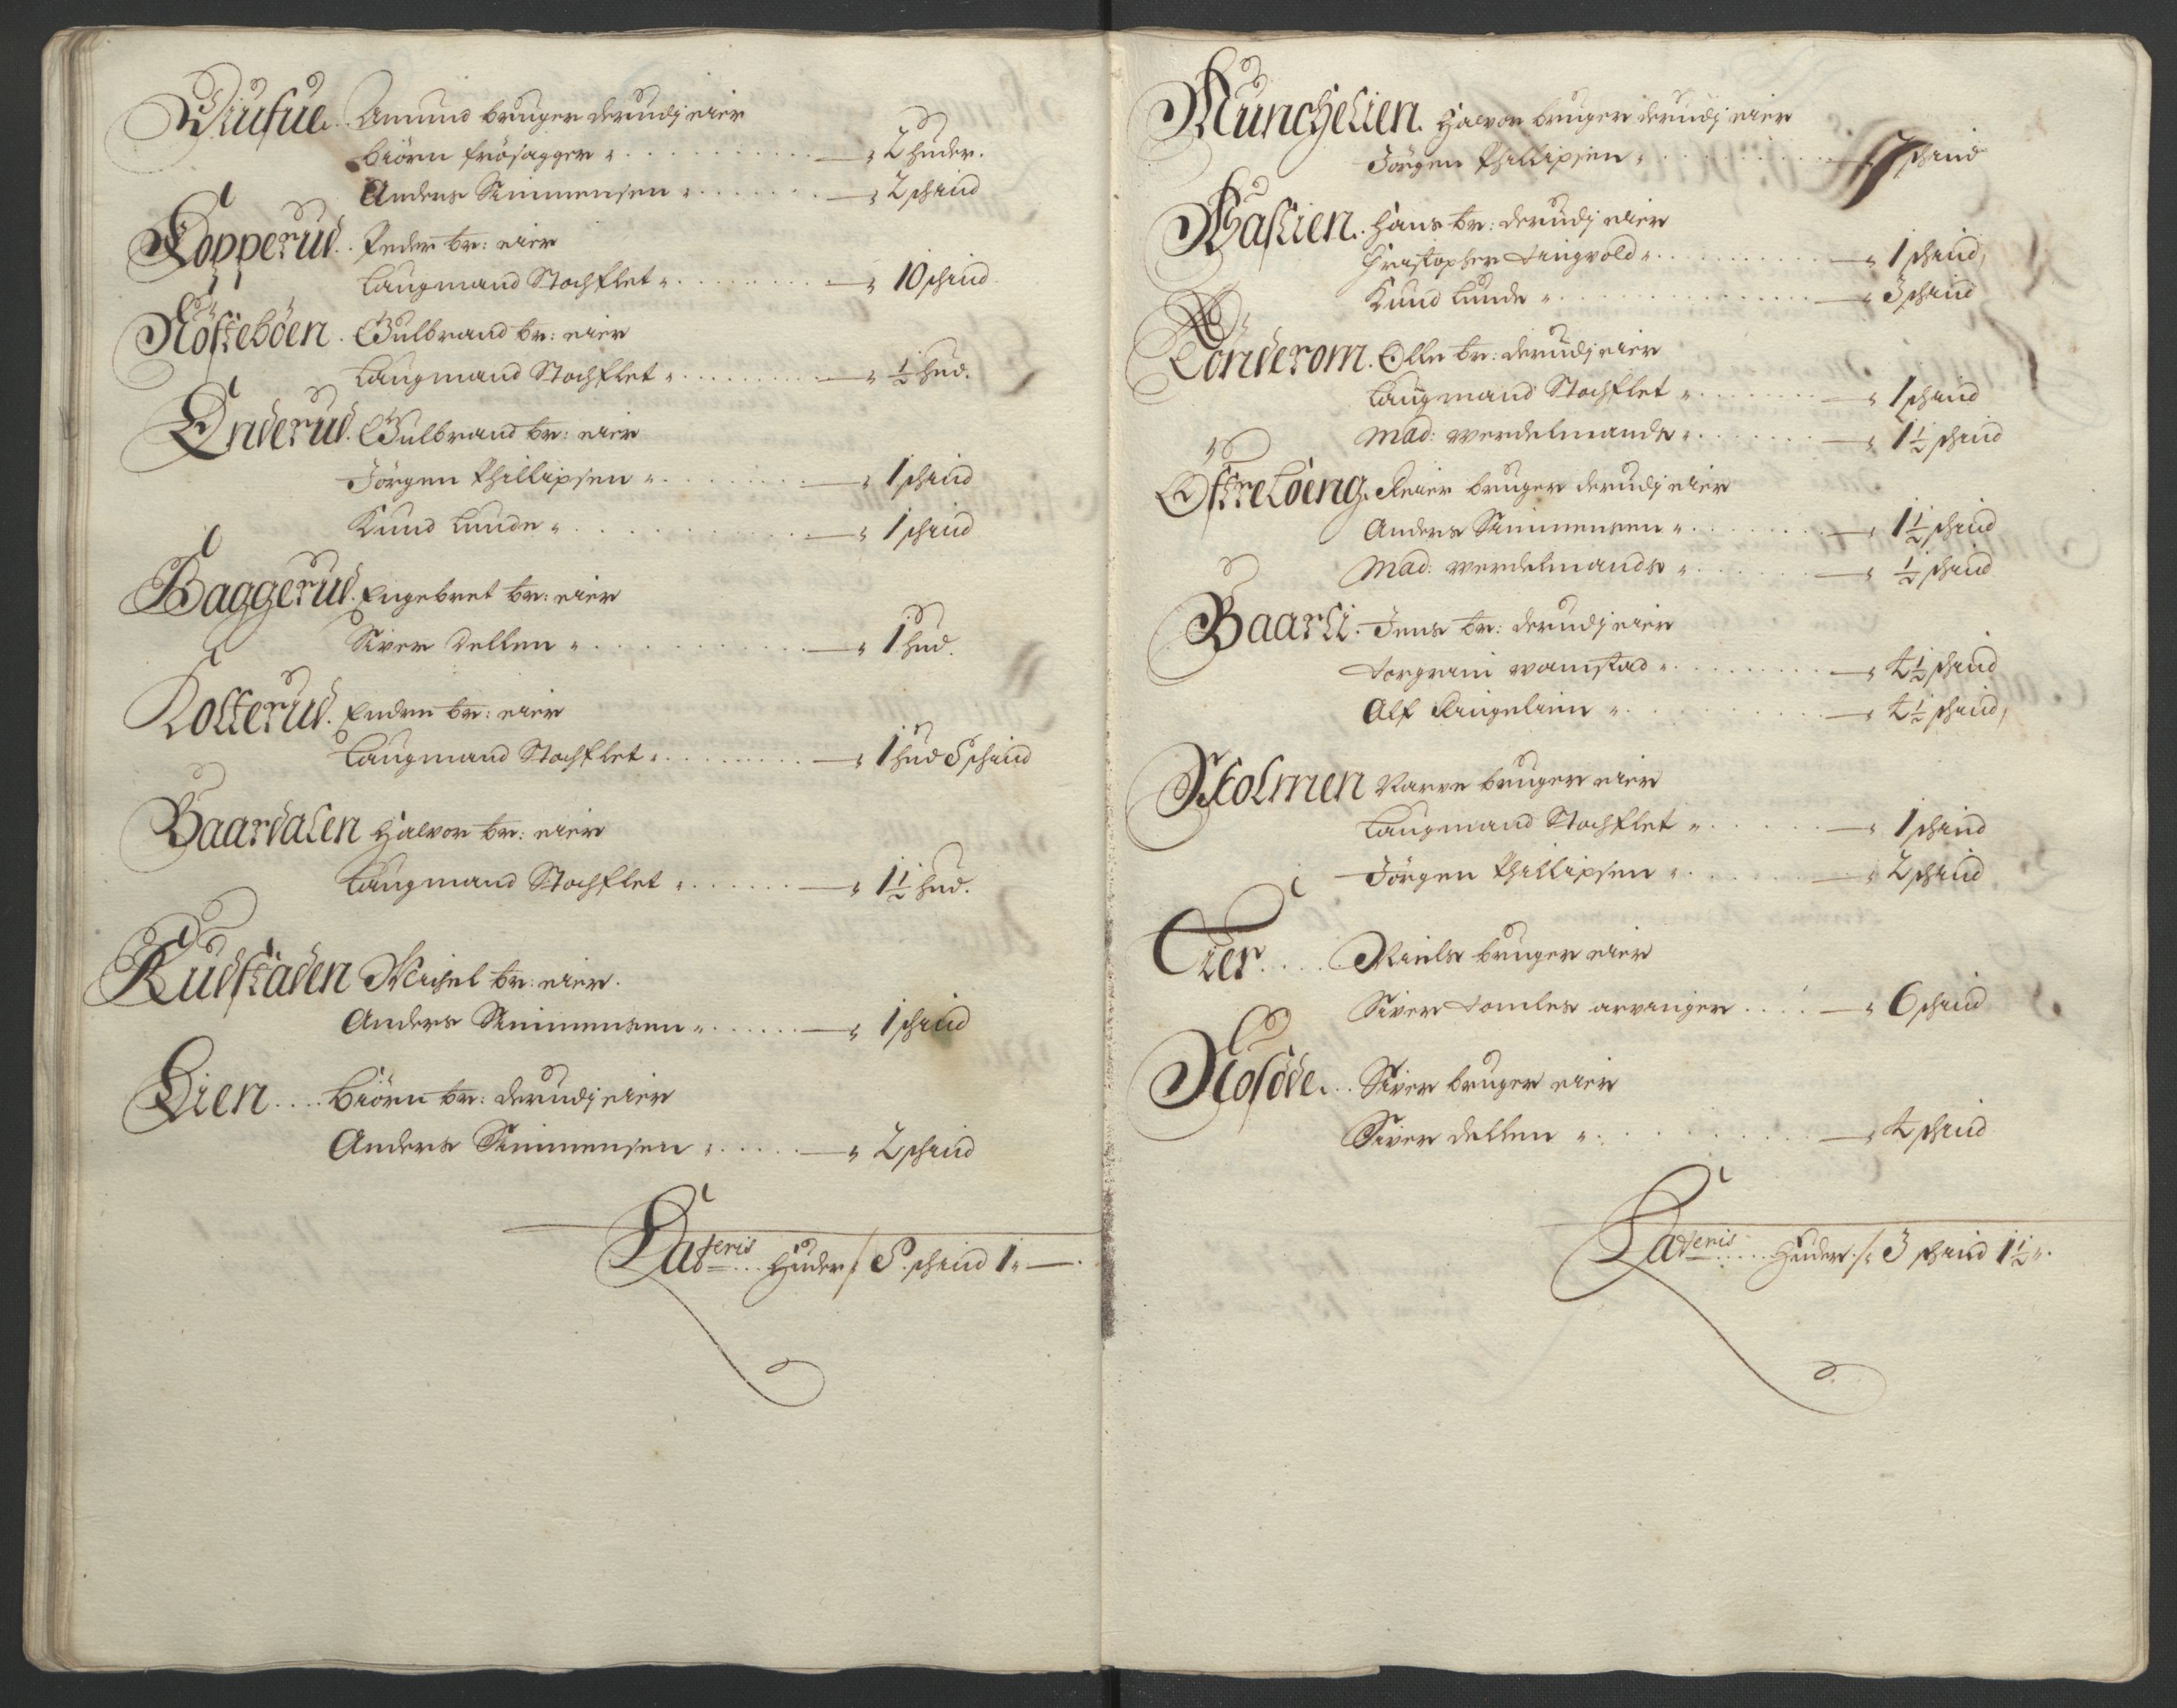 Amund bruger derudj eier
Biørn frøsagger " — " 2 huder.
Anders Simmensen " — " 2 schind
Kopperud. Peder br: eier
Laugmand Stochflet " — " 10 schind
Nøstebøen. Gulbrand br: eier
Laugmand Stochflet " — " ½ hud.
Enderud. Gulbrand br: eier
Jørgen Phillipsen " — " 1 schind
Knud Lunde " — " 1 schind
Baggerud. Engebret br: eier
Siver Dellen " — " 1 hud.
Kolterud. Endre br: eier
Laugmand Stochflet " — " 1 hud 5 schind
Baardalen Halvor br: eier
Laugmand Stochflet " — " 1½ hud.
Rudstaden Michel br: eier.
Anders Simmensen " — " 1 schind
Lien .... Biørn br: derudj eier
Anders Simmensen " — " 2 schind
Lateris ... Huder / 8. schind 1 " —
Munchelien. Halvor bruger derudj eier
Jørgen Phillipsen " — " 7 schind
Haslien. Hans br: derudj eier
Christopher Tingvold " — " 1 schind,
Knud Lunde " — " 3 schind
Tønderom. Olle br: derudj eier
Laugmand Stochflet " — " 1 schind
Mad: Werdelmands " — " 1½ schind
Østre Løeng. Reier bruger derudj eier
Anders Simmensen " — " 1½ schind
Mad: Werdelmands " — " ½ schind
Baarli. Jens br: derudj eier
Torgrim Wamstad " — " 4½ schind
Alf Ringeliim " — " 4½ schind,
Stolmen Narve bruger eier
Laugmand Stochflet " — " 1 schind
Jørgen Phillipsen " — " 2 schind
Niels bruger eier
Siver Tomles arvinger .... — " 6 schind
Siver bruger eier
Siver Dellen " — " 4 schind
Lateris .... Huder / 3 schind 1½ ".